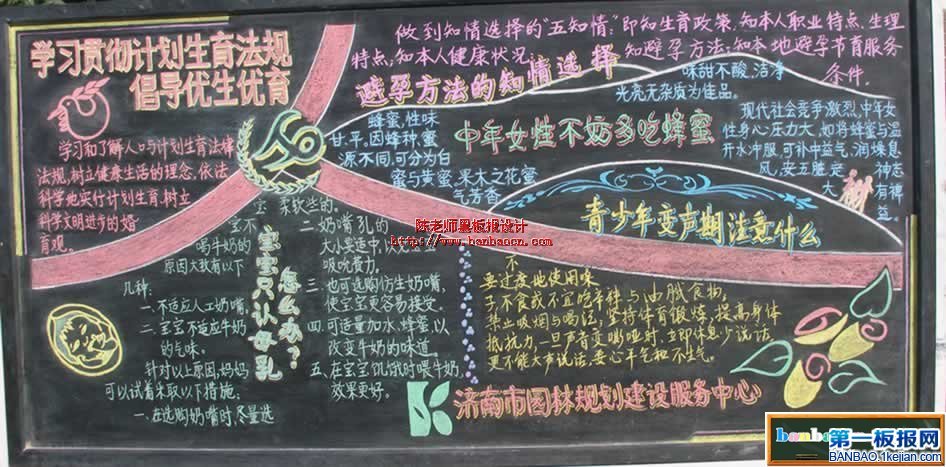 学习贯彻计划生育法规
倡导优生优育
学习和了解人口与计划生育法律
法规,树立健康生活的理念,依法
科学地实行计划生育,树立
科学文明进步的婚
育观。
做到知情选择的“五知情”:即知生育政策,知本人职业特点、生理
特点,知本人健康状况,知避孕方法,知本地避孕节育服务
条件。
避孕方法的知情选择
中年女性不妨多吃蜂蜜
蜂蜜,性味
甘平,因蜂种,蜜
源不同,可分为白
蜜与黄蜜,果木之花蜜
气芳香
味甜不酸,洁净
光亮无杂质为佳品。
现代社会竞争激烈,中年女
性身心压力大,如将蜂蜜与温
开水冲服,可补中益气,润燥息
风,安五脏,定神志
大有裨
益。
宝宝只认母乳
怎么办?
宝
宝不
喝牛奶的
原因大致有以下
几种:
一.不适应人工奶嘴。
二.宝宝不适应牛奶
的气味。
针对以上原因,妈妈
可以试着采取以下措施:
一.在选购奶嘴时,尽量选
柔软些的.
二.奶嘴孔的
大小要适中,
吸吮费力.
三.也可选购仿生奶嘴,
使宝宝更容易接受.
四.可适量加水、蜂蜜,以
改变牛奶的味道.
五.在宝宝饥饿时喂牛奶,
效果更好.
青少年变声期注意什么
不
要过度地使用嗓
子不食或不宜吃辛辣与油腻食物。
禁止吸烟与喝酒,坚持体育锻炼,提高身体
抵抗力,一旦声音变嘶哑时,立即休息少说话,
更不能大声说话,要心平气和不生气。
济南市园林规划建设服务中心
陈老师黑板报设计
http://www.banbaocn.com
第一板报网
BANBAO.1kejian.com